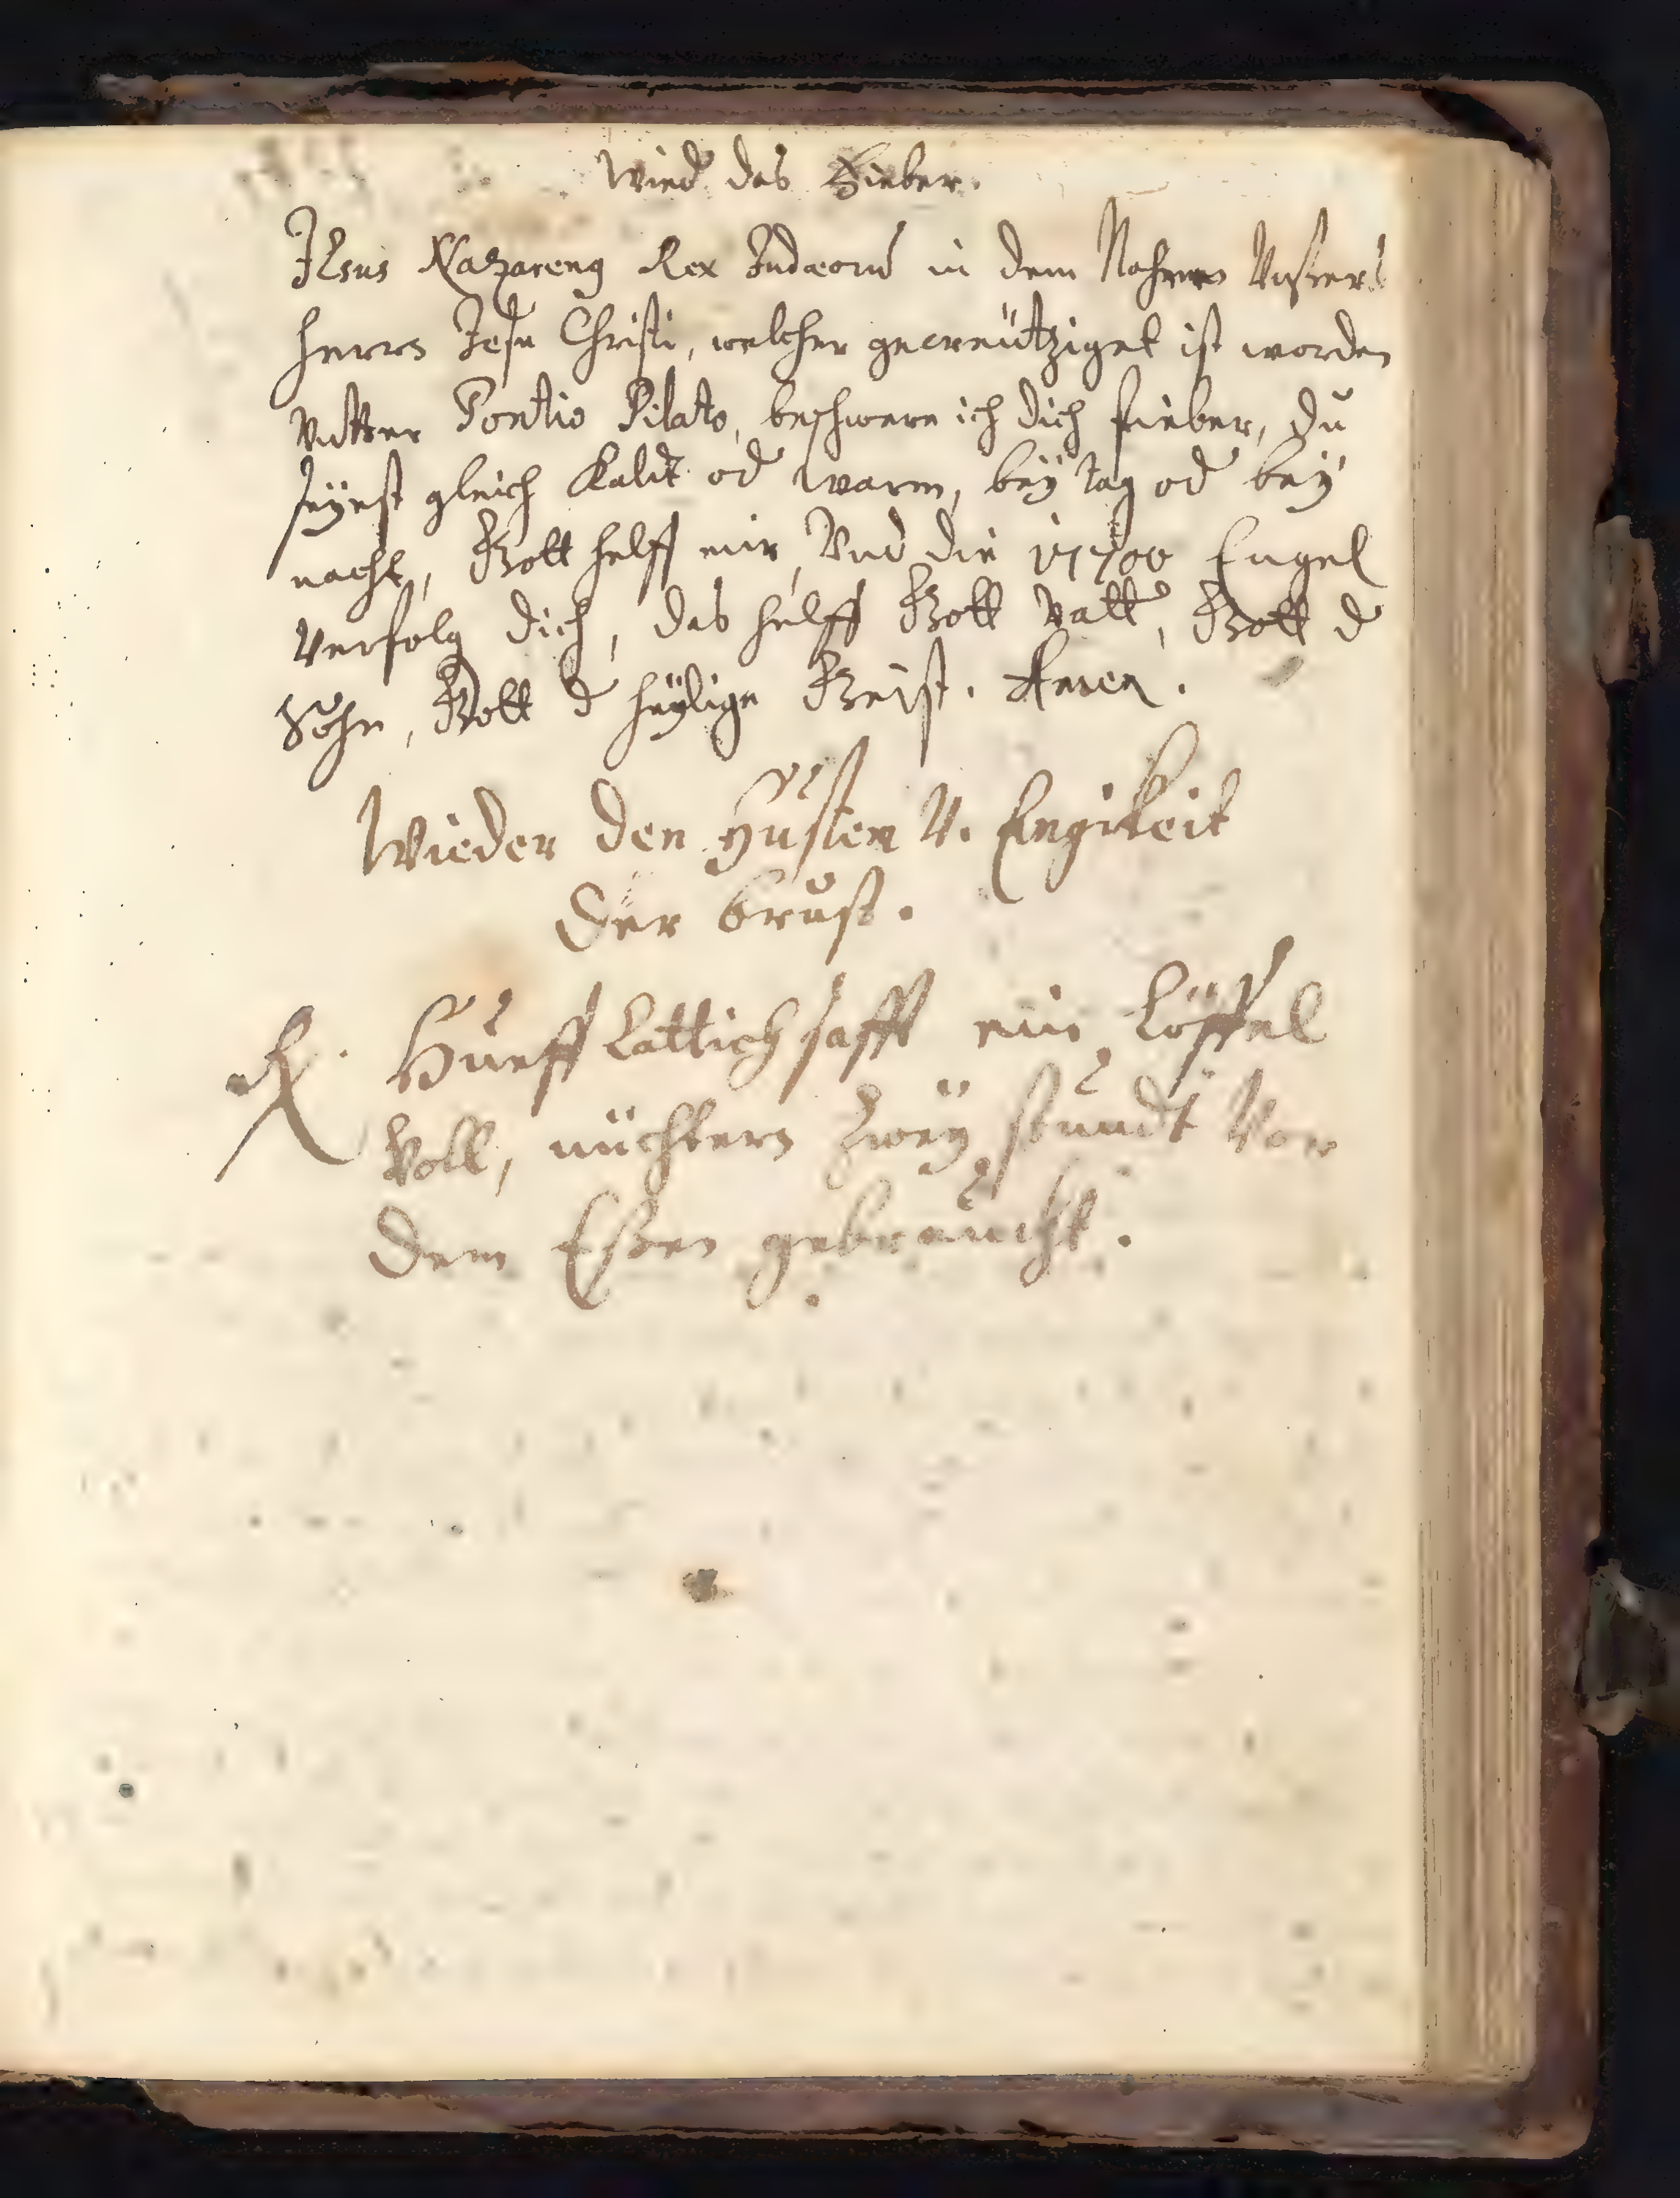 Wied das Fieber.
JEsus Nazareng Rex Judæorū in dem Nahmen Vnsers
herrn Jesu Christi, welcher gecreütziget ist worden
Vntter Pontio Pilato, beschwere ich dich fieber, du
seÿest gleich Kaldt od warm, beÿ tag od beÿ
nacht, Gott helff mir, Vnd die Engel
Verfolg dich, das helff Gott Vatt, Gott d
Sohn, Gott d heÿlige Geist. Amen.
Wieder den Husten V. Engikeit
der brust.
℞. Hueff Lattich safft ein Löffel
Voll, nüchtern Zweÿ stundt Vor
dem Eßen gebraucht.